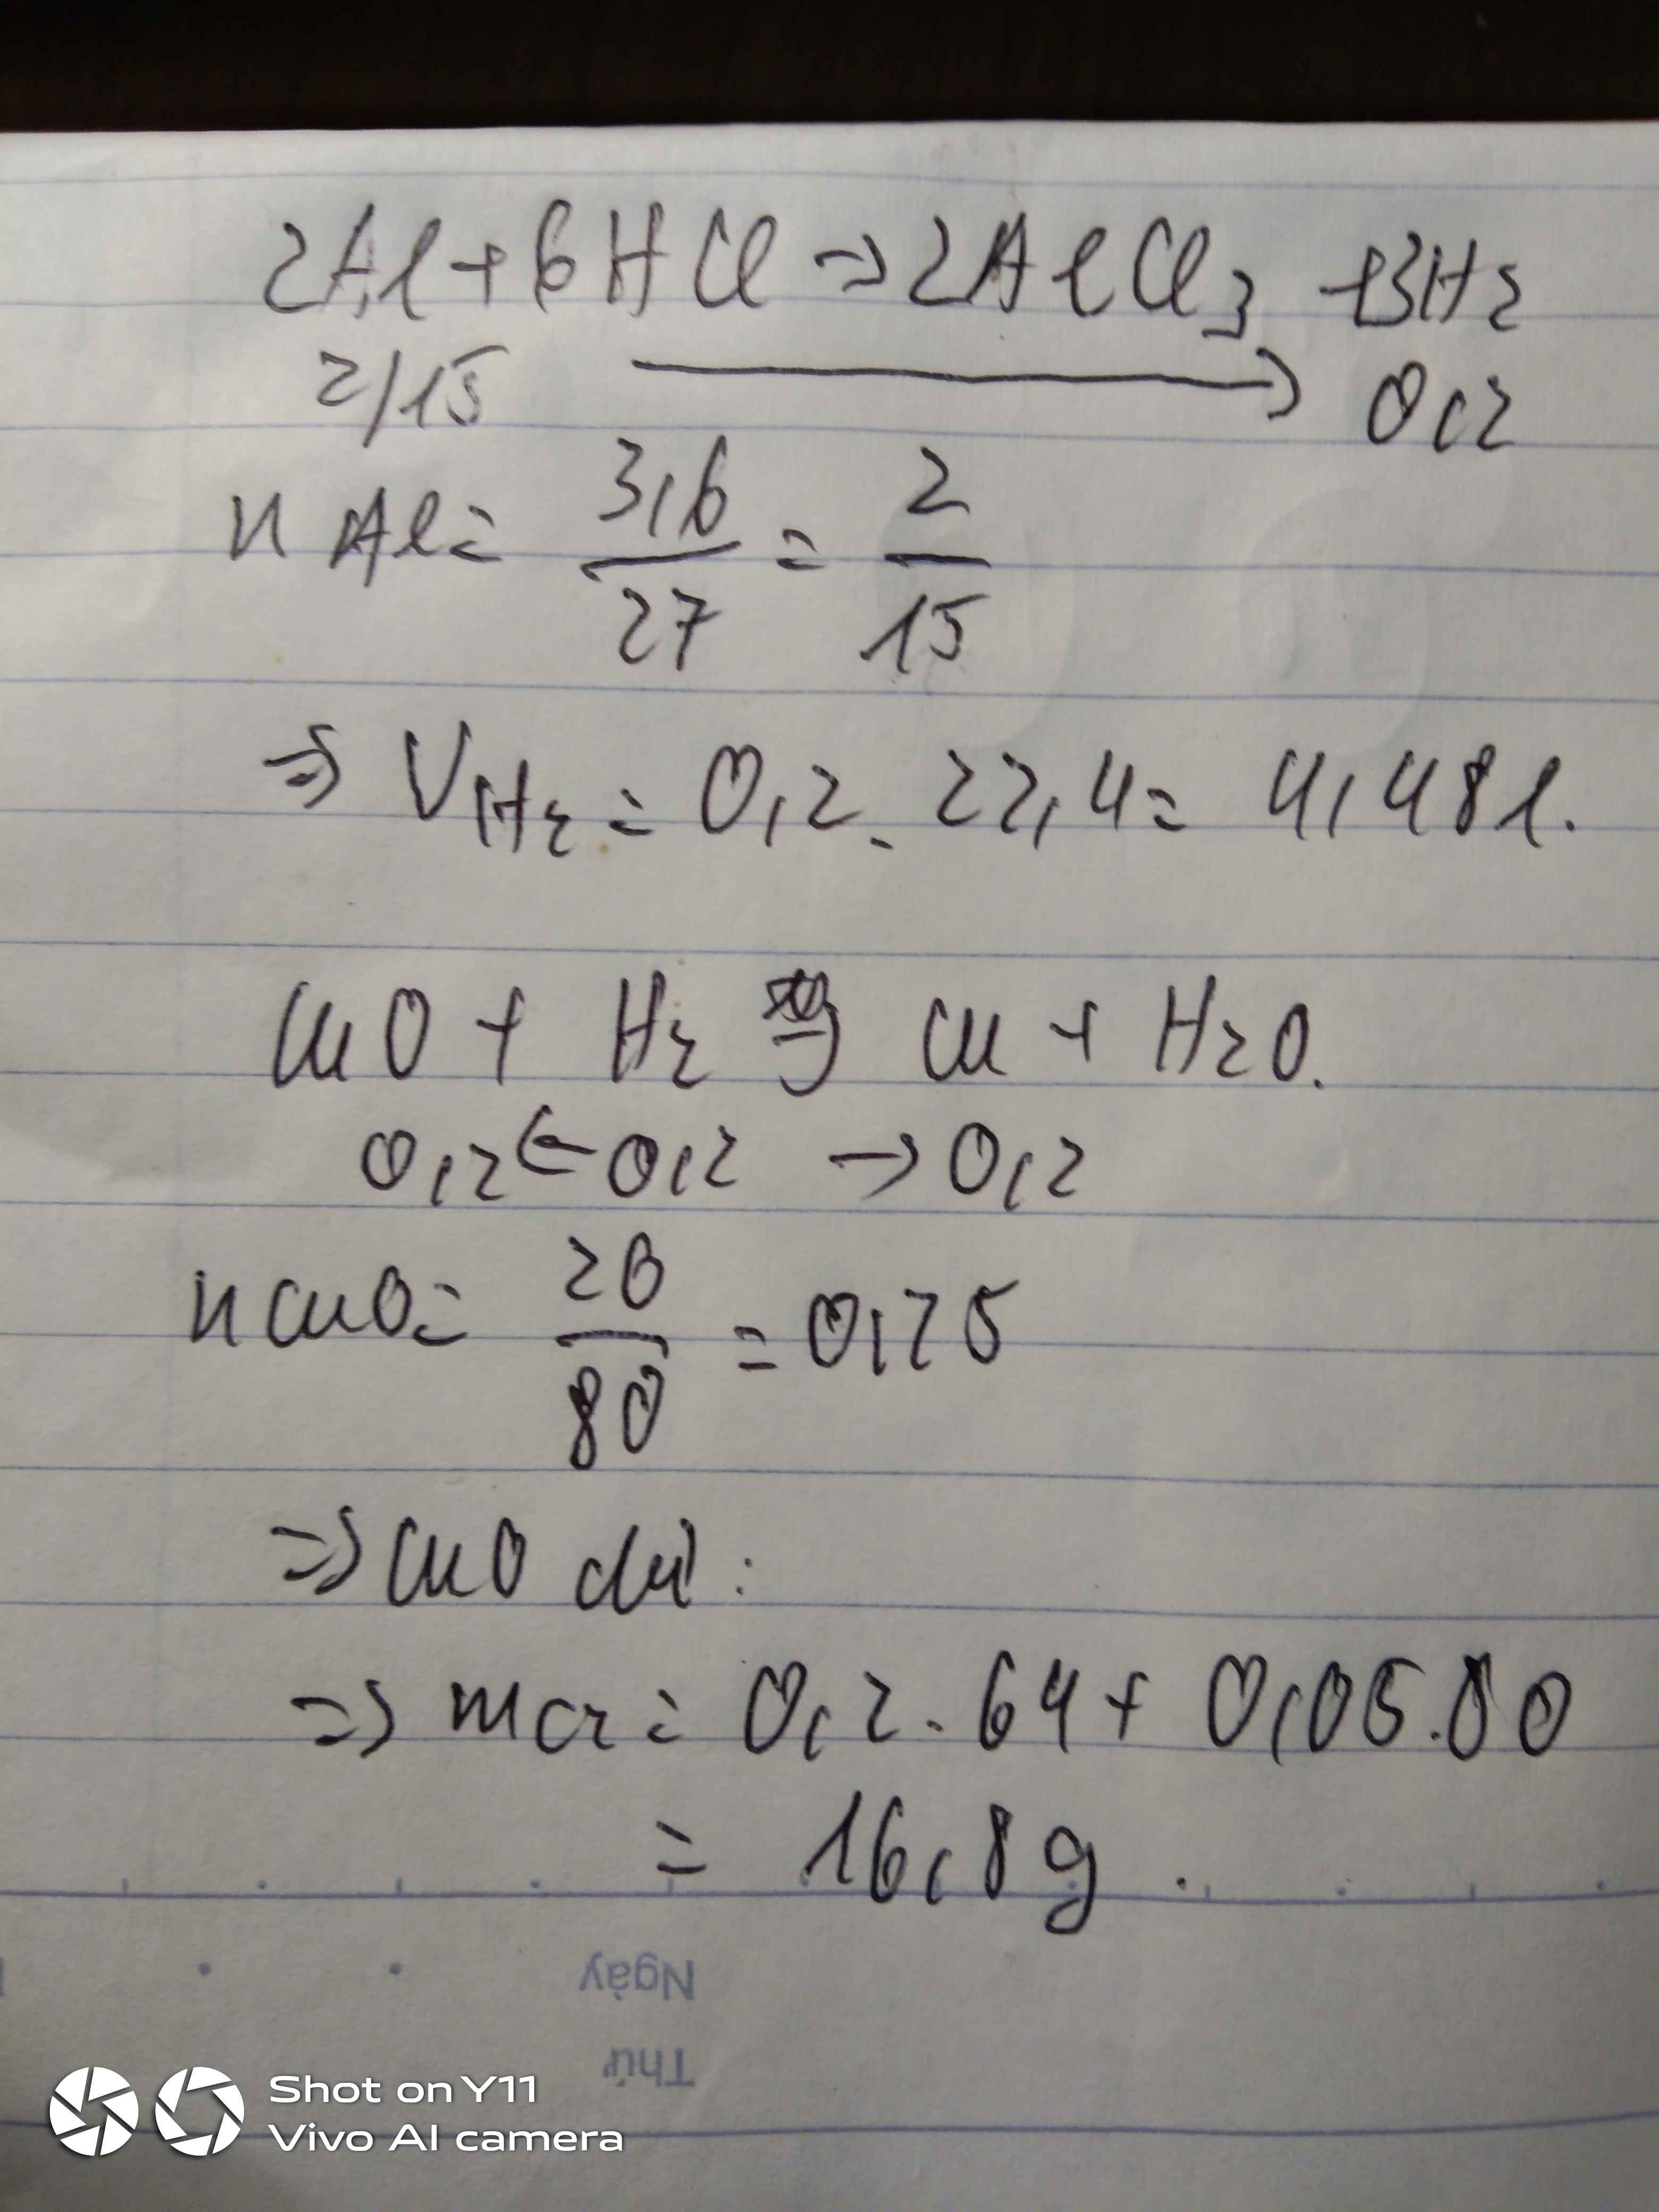 2Al + 6HCl → 2AlCl3 + 3H2
2/15 → 0,2
n Al = 3,6/27 = 2/15
⇒ VH2 = 0,2 . 22,4 = 4,48 l.
CuO + H2 → Cu + H2O.
0,2 ← 0,2 → 0,2
n CuO = 20/80 = 0,25
⇒ CuO dư :
⇒ mcr = 0,2 . 64 + 0,05 . 80
= 16,8 g .
Ngày
Thứ
Shot on Y11
Vivo AI camera